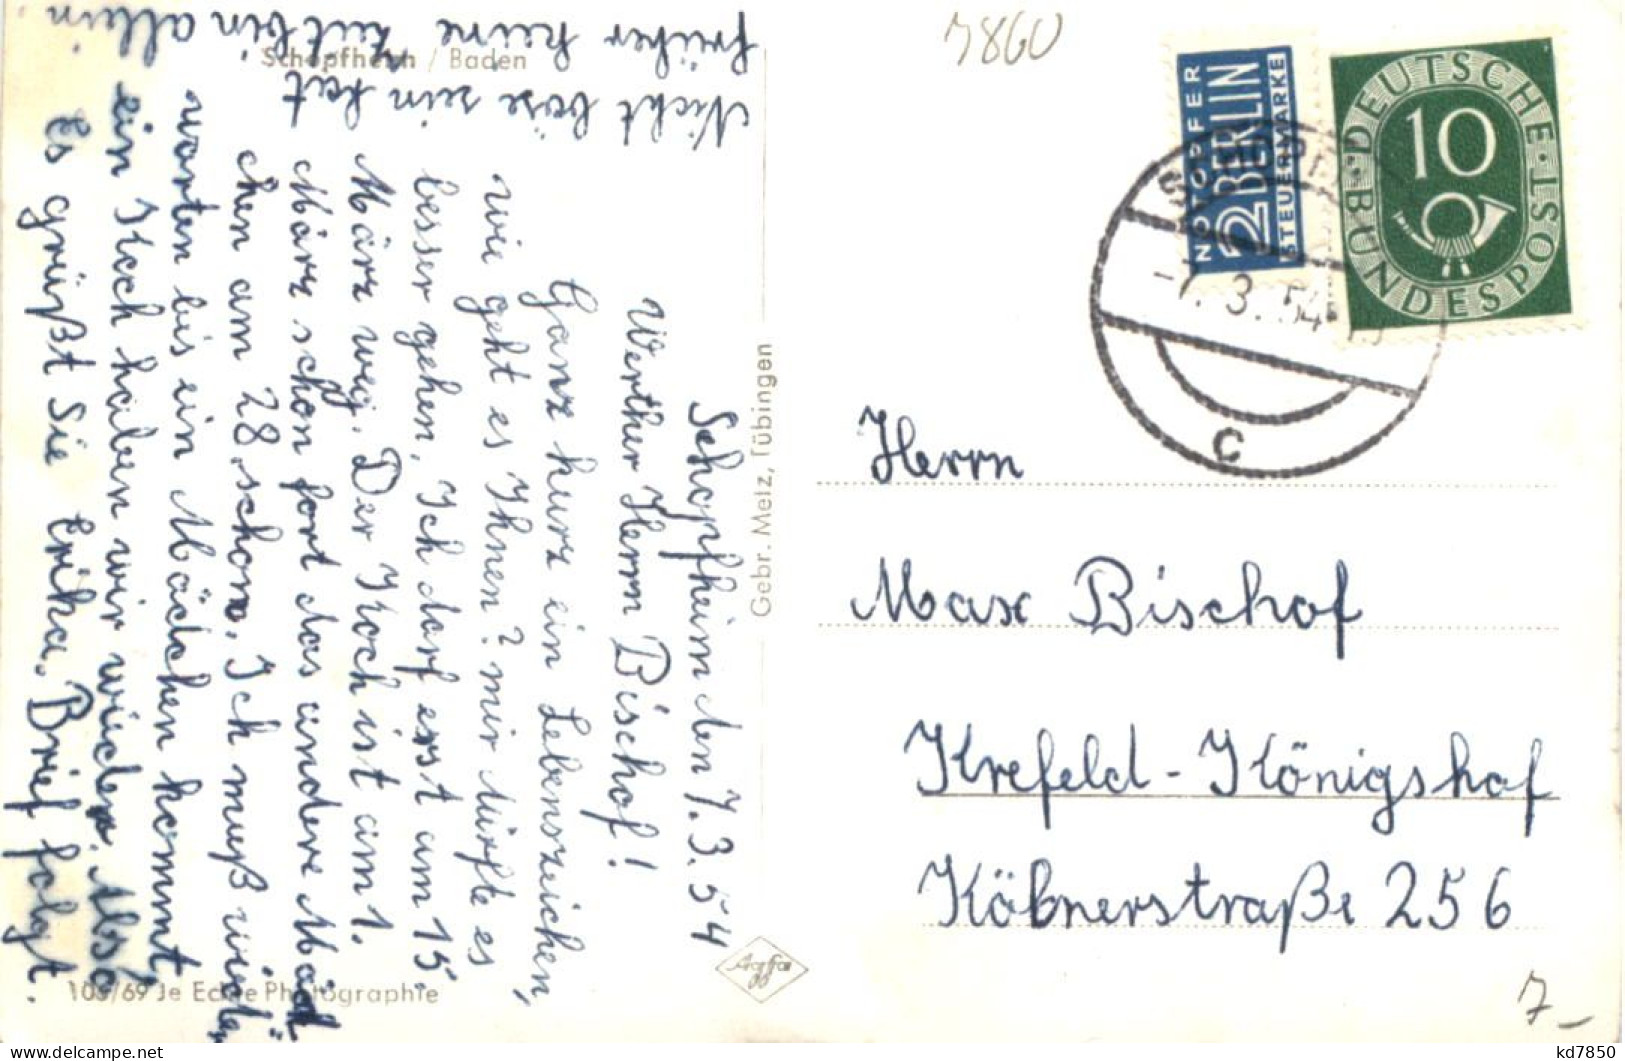 Schopfheim / Baden
Schopfheim den 7.3.54
Werther Herrn Bischof!
Ganz kurz ein Lebenszeichen,
wie geht es Ihnen? mir dürfte es
besser gehen. Ich darf erst am 15.
März weg. Der Koch ist am 1.
März schon fort das andere Mäd
chen am 28. schon. Ich muß wieder
warten bis ein Mädchen kommt,
ein Koch haben wir wieder. Also
Es grüßt Sie Erika. Brief folgt.
Nicht böse sein hat
früher keine zeit bin allein
103/69 Je Echte Photographie
Gebr. Melz, Tübingen
Agfa
7860
NOTOPFER
2 BERLIN
STEUERMARKE
DEUTSCHE BUNDESPOST
10
-7.3.54
c
Herrn
Max Bischof
Krefeld-Königshof
Köbnerstraße 256
7-
kd7850